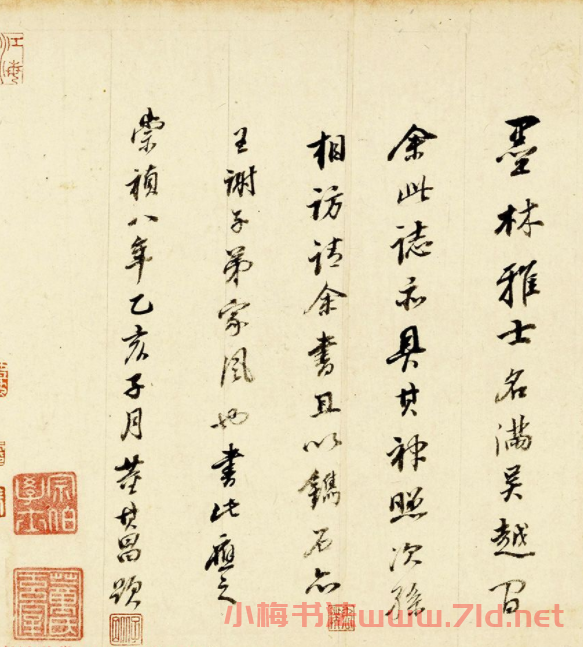 墨林雅士名滿吳越間
余此誌亦具其神照次孫
相訪請余書且以鐫石亦
王謝子弟家風也書此應之
崇禎八年乙亥子月董其昌題
宗伯學士
董氏玄宰
小梅书法www.7ld.net